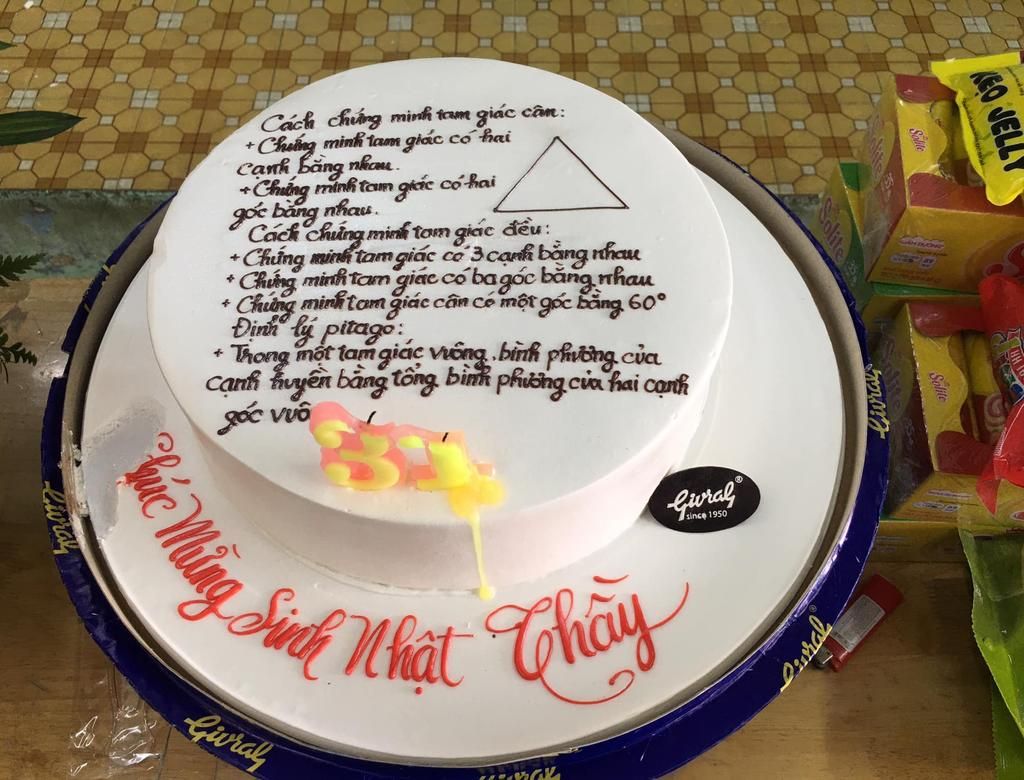 Cách chứng minh tam giác cân:
+ Chứng minh tam giác có hai
cạnh bằng nhau.
+ Chứng minh tam giác có hai
góc bằng nhau.
Cách chứng minh tam giác đều:
+ Chứng minh tam giác có 3 cạnh bằng nhau
+ Chứng minh tam giác có ba góc bằng nhau
+ Chứng minh tam giác cân có một góc bằng 60°
Định lý pitago:
+ Trong một tam giác vuông, bình phương của
cạnh huyền bằng tổng bình phương của hai cạnh
góc vuô
31
Chúc Mừng Sinh Nhật Thầy
Givral®
since 1950
Givral
Givral
Givral
Givral
KẸO JELLY
Solite
Solite
Solite